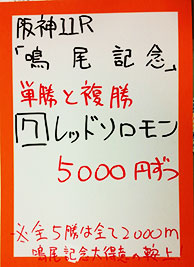 阪神11R
「鳴尾記念」
単勝と複勝
7 レッドソロモン
5000円ずつ
※全5勝は全て2000m
鳴尾記念大得意の鞍上